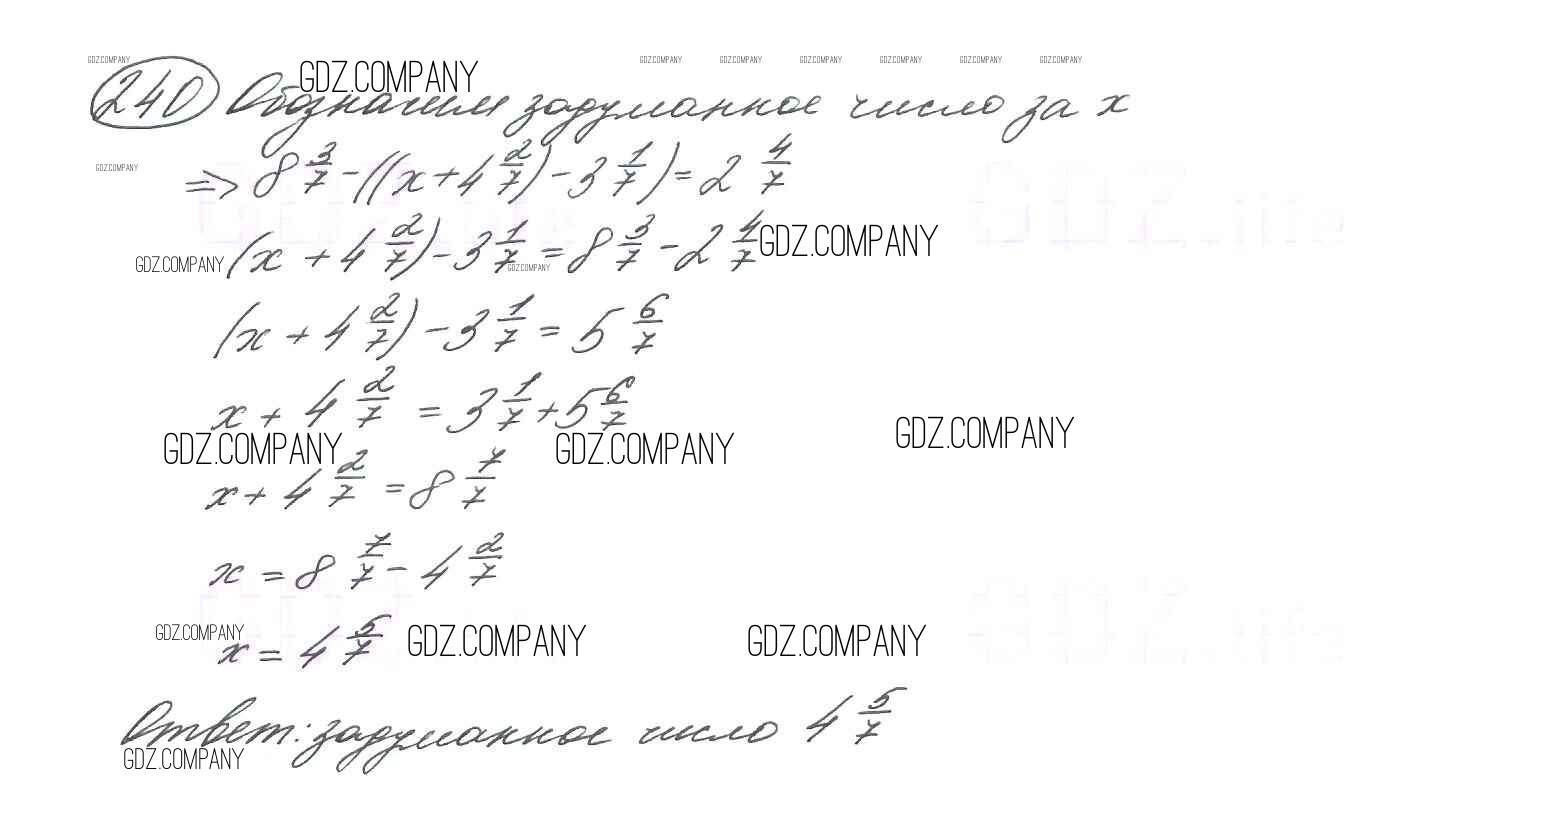 GDZ.COMPANY GDZ.COMPANY GDZ.COMPANY GDZ.COMPANY GDZ.COMPANY GDZ.COMPANY GDZ.COMPANY GDZ.COMPANY
240 Обозначим задуманное число за x
GDZ.COMPANY
=> 8 3/7 - ((x + 4 2/7) - 3 1/7) = 2 4/7
(x + 4 2/7) - 3 1/7 = 8 3/7 - 2 4/7
GDZ.COMPANY GDZ.COMPANY GDZ.COMPANY
(x + 4 2/7) - 3 1/7 = 5 6/7
x + 4 2/7 = 3 1/7 + 5 6/7
GDZ.COMPANY GDZ.COMPANY GDZ.COMPANY
x + 4 2/7 = 8 7/7
x = 8 7/7 - 4 2/7
GDZ.COMPANY GDZ.COMPANY GDZ.COMPANY
x = 4 5/7
Ответ: задуманное число 4 5/7
GDZ.COMPANY